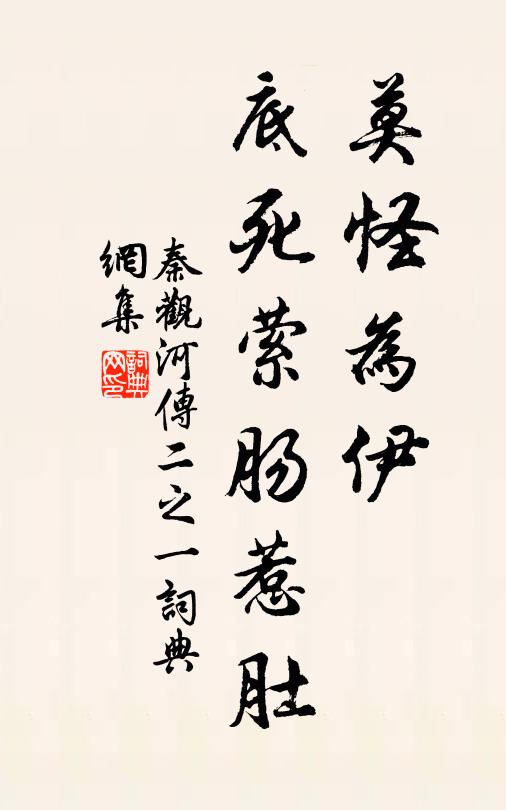 莫怪為伊
底死縈腸惹肚
秦觀河傳二之一詞典
網集
詞典網印